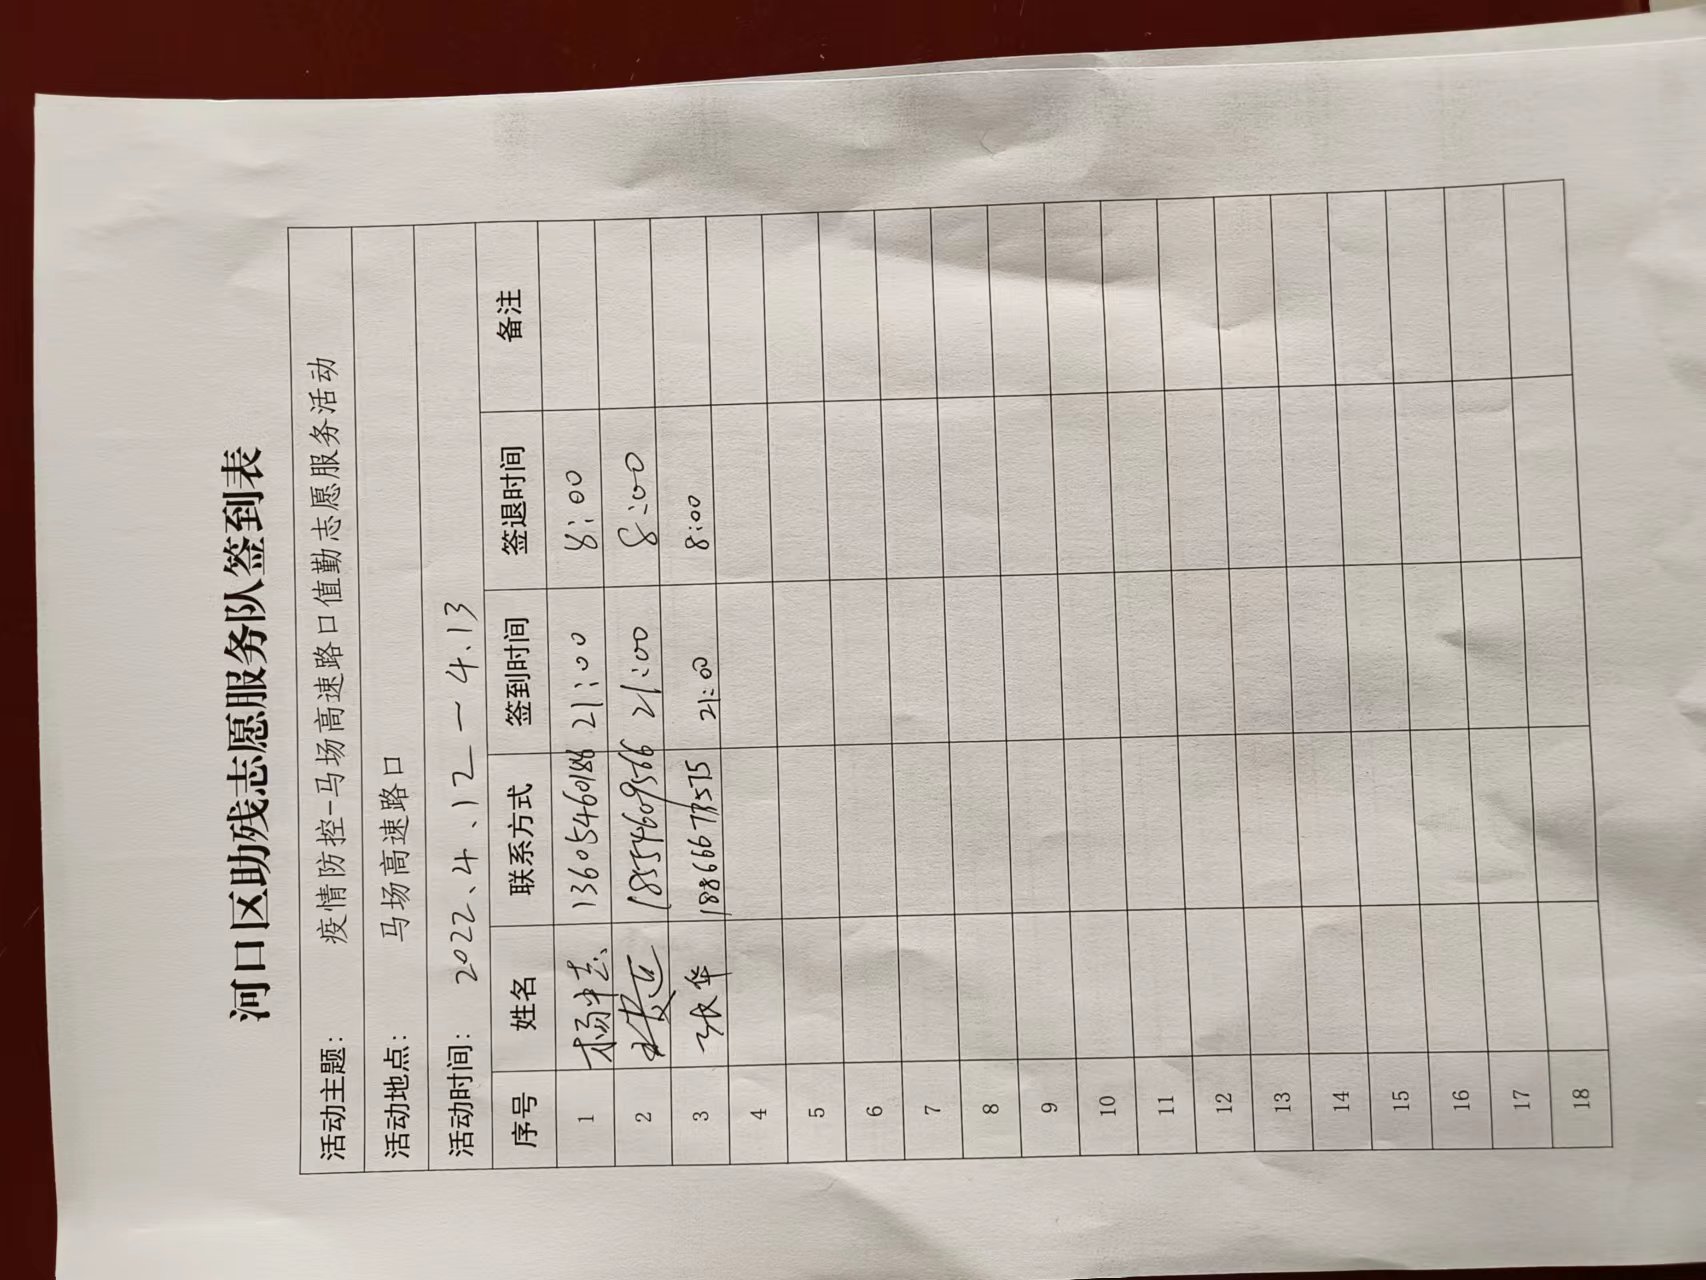 河口区助残志愿服务队签到表
活动主题： 疫情防控-马场高速路口值勤志愿服务活动
活动地点： 马场高速路口
活动时间： 2022.4.12－4.13
序号 姓名 联系方式 签到时间 签退时间 备注
1 杨中志 13605460186 21:00 8:00
2 18554609566 21:00 8:00
3 张华 18866673575 21:00 8:00
4
5
6
7
8
9
10
11
12
13
14
15
16
17
18